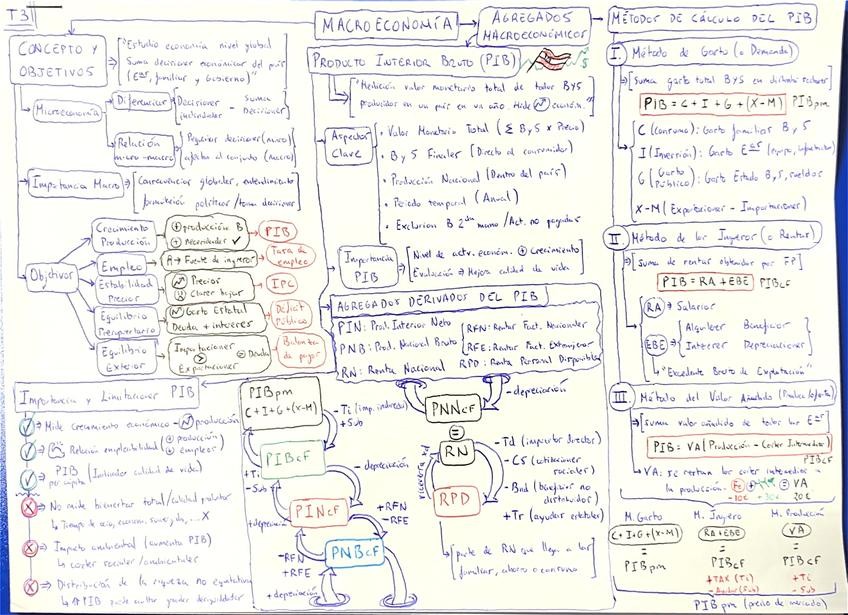 T3
MACROECONOMÍA
AGREGADOS
MACROECONÓMICOS
MÉTODOS DE CÁLCULO DEL PIB
CONCEPTO Y
OBJETIVOS
"Estudio economía nivel global
Suma decisiones económicas del país
(Eªs, familias y Gobierno)"
Microeconomía
Diferencias
Decisiones individuales - Suma Decisiones
Relación
micro-macro
Pequeñas decisiones (micro)
afectan al conjunto (macro)
Importancia Macro
Consecuencias globales, entendimiento
políticas / toma decisiones
Objetivos
Crecimiento
Producción
+ producción B
+ necesidades ✓
PIB
Empleo
A → Fuente de ingresos
Tasa de
empleo
Estabilidad
Precios
Precios
Clases bajas
IPC
Equilibrio
Presupuestario
Gasto Estatal
Deuda + intereses
Déficit
Público
Equilibrio
Exterior
Importaciones
>
Exportaciones
= Deuda
Balanza
de pagos
PRODUCTO INTERIOR BRUTO (PIB)
"Medición valor monetario total de todos B y S
producidos en un país en un año. Mide económ."
Aspectos
Clave
• Valor Monetario Total (Σ B y S × Precio)
• B y S Finales [Directo al consumidor)
• Producción Nacional (Dentro del país)
• Periodo temporal (Anual)
• Exclusion B 2da mano / Act. no pagadas
Importancia
PIB
Nivel de activ. económ. + Crecimiento
Evaluación → Mejora calidad de vida
AGREGADOS DERIVADOS DEL PIB
PIN: Prod. Interior Neto
PNB: Prod. Nacional Bruto
RN: Renta Nacional
RFN: Rentas Fact. Nacionales
RFE: Rentas Fact. Extranjeros
RPD: Renta Personal Disponible
I. Método de Gasto (o Demanda)
[Suma gasto total B y S en distintos sectores
PIB = C + I + G + (X-M) PIBpm
C (consumo): Gasto familias B y S
I (Inversión): Gasto Eªs
G (Gasto Público): Gasto Estado B y S, sueldos
X-M (Exportaciones - Importaciones)
II. Método de los Ingresos (o Rentas)
[Suma de rentas obtenidas por FP]
PIB = RA + EBE PIBcF
RA → Salarios
EBE →
Alquileres Beneficios
Intereses Depreciaciones
"Excedente Bruto de Explotación"
III. Método del Valor Añadido (Producc./oferta)
[Suma valor añadido de todas las Eªs]
PIB = VA (Producción - Costes Intermedios)
PIBcF
VA: se restan los costes intermedios a
la producción.
-10€ +30€ = VA 20€
M. Gasto
C+I+G+(X-M)
=
PIBpm
M. Ingreso
RA+EBE
=
PIBcF
+TAX (Ti)
M. Producción
VA
=
PIBcF
+Ti
-Sub
PIBpm (precio de mercado)
Importancia y Limitaciones PIB
Mide Crecimiento económico - producción
Relación empleabilidad + producción + empleos
PIB per cápita (Indicador calidad de vida)
No mide bienestar total/calidad productos
Impacto ambiental (aumenta PIB)
costes sociales/ambientales
Distribución de la riqueza no equitativa
↑PIB puede ocultar grandes desigualdades
PIBpm
C+I+G+(X-M)
-Ti (imp. indirectos)
+Sub
PIBcF
+Ti
-Sub
-depreciación
PINcF
+depreciación
+RFN
-RFE
PNBcF
-RFN
+RFE
+depreciación
-depreciación
PNNcF
=
RN
RPD
viceversa
-Td (impuestos directos)
-CS (cotizaciones sociales)
-Bnd (beneficios no distribuidos)
+Tr (ayudas estatales)
[parte de RN que llega a las
familias, ahorro o consumo]